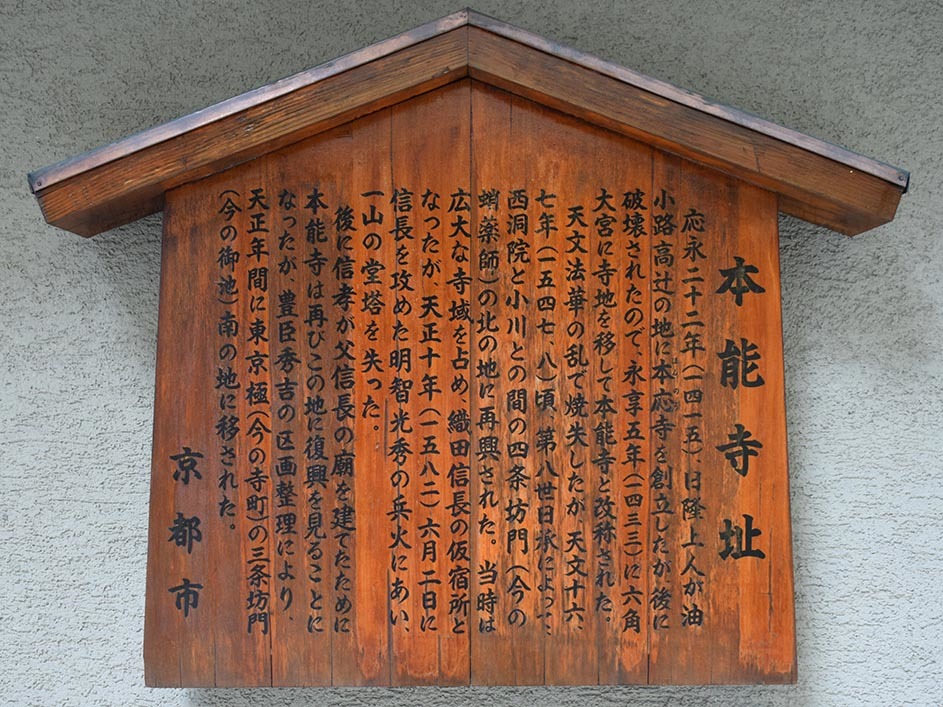 本能寺址
応永二十二年(一四一五)日隆上人が油
小路高辻の地に本応寺を創立したが、後に
破壊されたので、永享五年(一四三三)に六角
大宮に寺地を移して本能寺と改称された。
天文法華の乱で焼失したが、天文十六、
七年(一五四七、八)頃、第八世日承によって、
西洞院と小川との間の四条坊門(今の
蛸薬師)の北の地に再興された。当時は
広大な寺域を占め、織田信長の仮宿所と
なったが、天正十年(一五八二)六月二日に
信長を攻めた明智光秀の兵火にあい、
一山の堂塔を失った。
後に信孝が父信長の廟を建てたために
本能寺は再びこの地に復興を見ることに
なったが、豊臣秀吉の区画整理により、
天正年間に東京極(今の寺町)の三条坊門
(今の御池)南の地に移された。
京都市